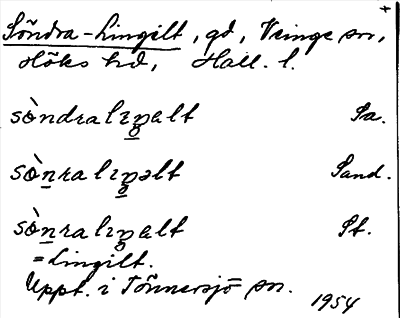 +
Söndra-Lingilt, gd, Veinge sn,
Höks hd, Hall. l.
sòndralıŋalt Sa.
sònralıŋəlt Sand.
sònralıŋalt St.
= Lingilt.
Uppt. i Tönnersjö sn.
1954